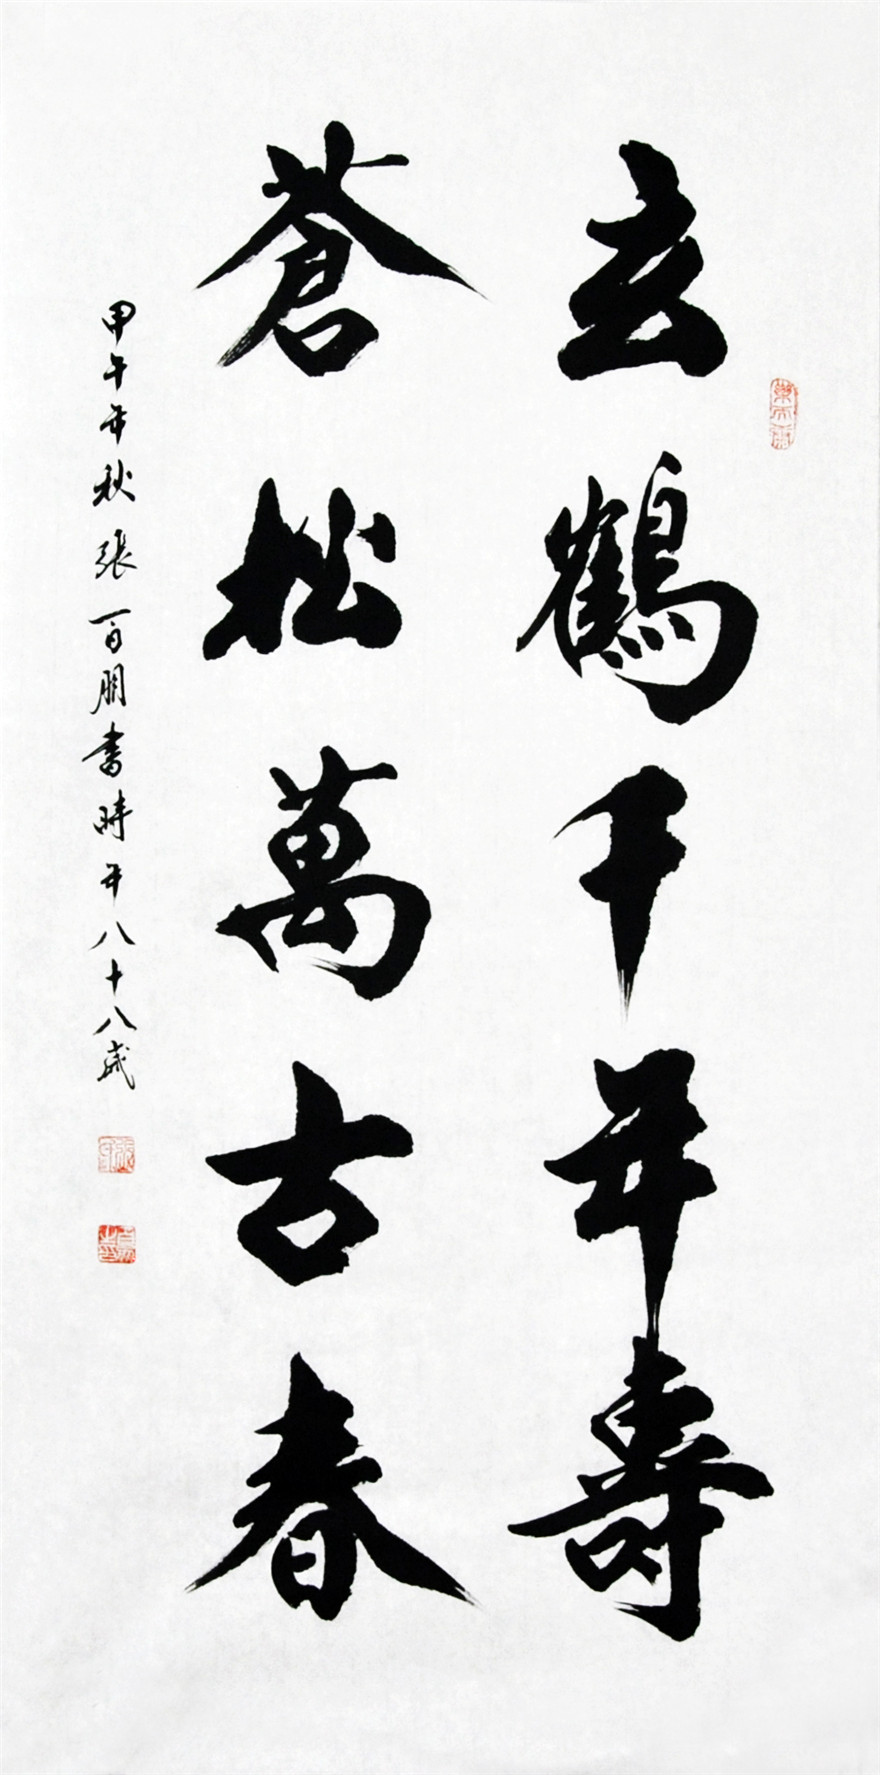 玄鶴千年壽
蒼松萬古春
甲午年秋張百朋書時年八十八歲